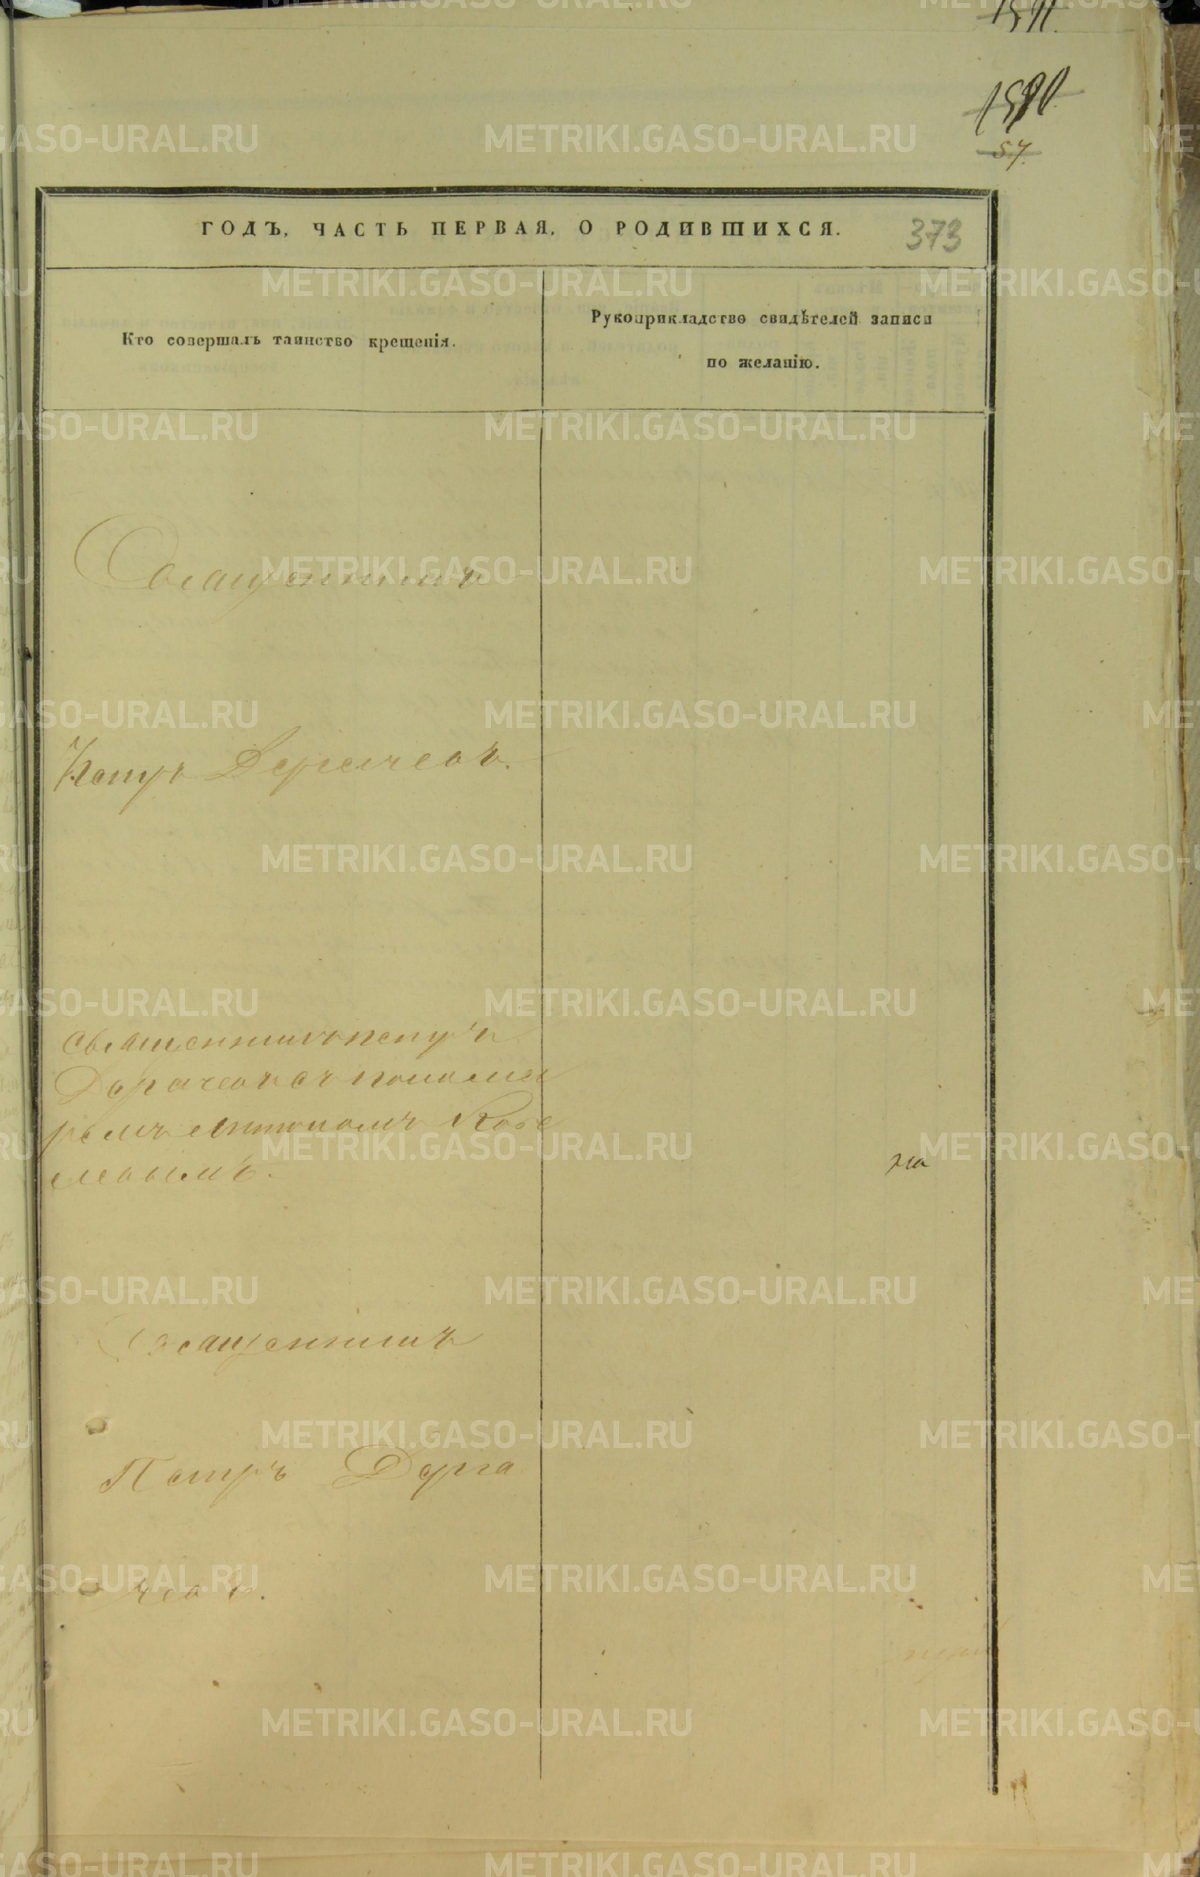 1591.
1590
57.
ГОДЪ, ЧАСТЬ ПЕРВАЯ, О РОДИВШИХСЯ. 373
Кто совершалъ таинство крещенія.
Рукоприкладство свидѣтелей записи
по желанію.
Священникъ
Петръ Дергачевъ.
священникъ петръ
Дергачевъ съ понома
ремъ Антономъ
Священникъ
Петръ Дерга
чевъ.
METRIKI.GASO-URAL.RU